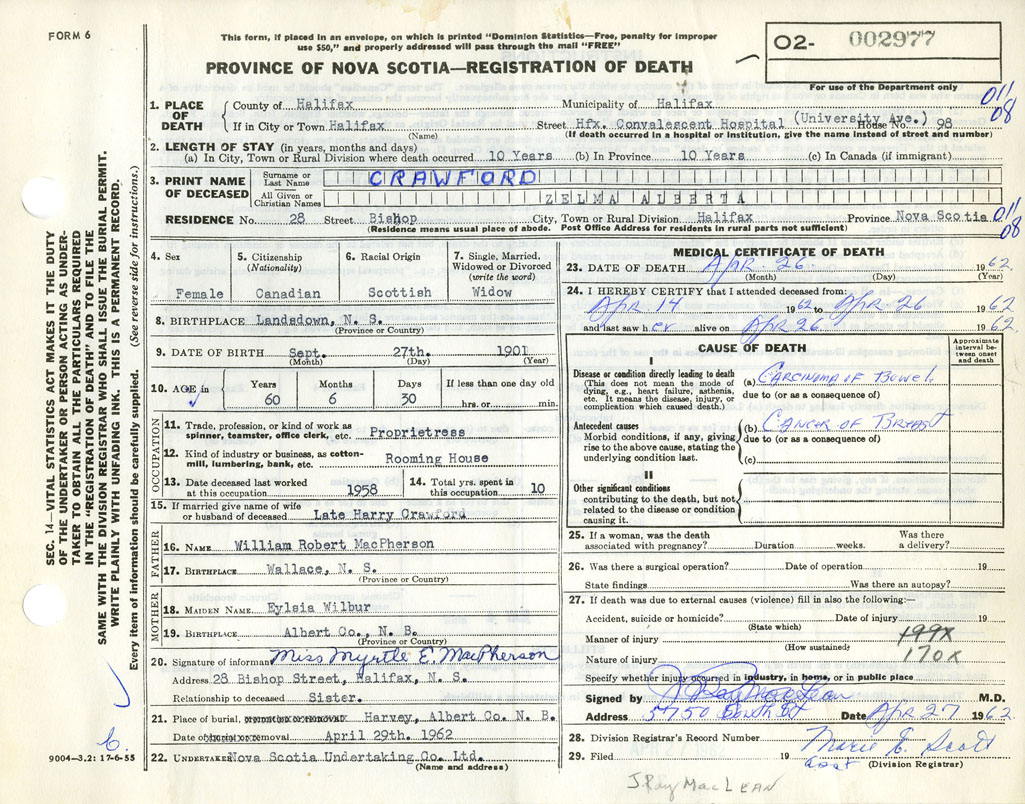 FORM 6
This form, if placed in an envelope, on which is printed "Dominion Statistics—Free, penalty for improper
use $50," and properly addressed will pass through the mail "FREE"
PROVINCE OF NOVA SCOTIA—REGISTRATION OF DEATH
O2- 002977
For use of the Department only
SEC. 14.—VITAL STATISTICS ACT MAKES IT THE DUTY
OF THE UNDERTAKER OR PERSON ACTING AS UNDER-
TAKER TO OBTAIN ALL THE PARTICULARS REQUIRED
IN THE "REGISTRATION OF DEATH" AND TO FILE THE
SAME WITH THE DIVISION REGISTRAR WHO SHALL ISSUE THE BURIAL PERMIT.
WRITE PLAINLY WITH UNFADING INK. THIS IS A PERMANENT RECORD.
Every item of information should be carefully supplied. (See reverse side for instructions.)
1. PLACE OF DEATH
County of Halifax Municipality of Halifax 011
08
If in City or Town Halifax Street Hfx. Convalescent Hospital (University Ave.) House No. 98
(Name) (If death occurred in a Hospital or Institution, give the name instead of street and number)
2. LENGTH OF STAY (in years, months and days)
(a) In City, Town or Rural Division where death occurred 10 Years (b) In Province 10 Years (c) In Canada (if immigrant)
3. PRINT NAME OF DECEASED
Surname or Last Name CRAWFORD
All Given or Christian Names ZELMA ALBERTA
RESIDENCE No. 28 Street Bishop City, Town or Rural Division Halifax Province Nova Scotia 011
08
(Residence means usual place of abode. Post Office Address for residents in rural parts not sufficient)
4. Sex
Female
5. Citizenship
(Nationality)
Canadian
6. Racial Origin
Scottish
7. Single, Married,
Widowed or Divorced
(write the word)
Widow
8. BIRTHPLACE Landsdown, N. S.
(Province or Country)
9. DATE OF BIRTH Sept. 27th. 1901
(Month) (Day) (Year)
10. AGE in Years Months Days If less than one day old
60 6 30 hrs. or min.
OCCUPATION
11. Trade, profession, or kind of work as
spinner, teamster, office clerk, etc. Proprietress
12. Kind of industry or business, as cotton-
mill, lumbering, bank, etc. Rooming House
13. Date deceased last worked
at this occupation 1958
14. Total yrs. spent in
this occupation 10
15. If married give name of wife
or husband of deceased Late Harry Crawford
FATHER
16. NAME William Robert MacPherson
17. BIRTHPLACE Wallace, N. S.
(Province or Country)
MOTHER
18. MAIDEN NAME Eylsia Wilbur
19. BIRTHPLACE Albert Co., N. B.
(Province or Country)
20. Signature of informant Miss Myrtle E. MacPherson
Address 28 Bishop Street, Halifax, N. S.
Relationship to deceased Sister.
21. Place of burial, cremation or removal Harvey, Albert Co. N. B.
Date of burial or removal April 29th. 1962
22. UNDERTAKER Nova Scotia Undertaking Co. Ltd.
(Name and address)
9004—3.2: 17-6-55
MEDICAL CERTIFICATE OF DEATH
23. DATE OF DEATH Apr. 26. 1962
(Month) (Day) (Year)
24. I HEREBY CERTIFY that I attended deceased from:
Apr 14 1962 to Apr 26 1962
and last saw her alive on Apr 26 1962
CAUSE OF DEATH
Approximate interval between onset and death
I
Disease or condition directly leading to death
(This does not mean the mode of
dying, e.g., heart failure, asthenia,
etc. It means the disease, injury, or
complication which caused death.)
(a) Carcinoma of Bowel
due to (or as a consequence of)
Antecedent causes
Morbid conditions, if any, giving
rise to the above cause, stating the
underlying condition last.
(b) Cancer of Breast
due to (or as a consequence of)
(c)
II
Other significant conditions
contributing to the death, but not
related to the disease or condition
causing it.
25. If a woman, was the death
associated with pregnancy? Duration weeks. Was there
a delivery?
26. Was there a surgical operation? Date of operation 19
State findings Was there an autopsy?
27. If death was due to external causes (violence) fill in also the following:—
Accident, suicide or homicide? Date of injury 19
(State which)
Manner of injury 199x
(How sustained)
Nature of injury 170x
Specify whether injury occurred in industry, in home, or in public place
Signed by J. Ray MacLean M.D.
Address 5750 Date Apr 27 1962
28. Division Registrar's Record Number
29. Filed 19 Marie E. Scott
(Division Registrar)
J. Ray MacLean